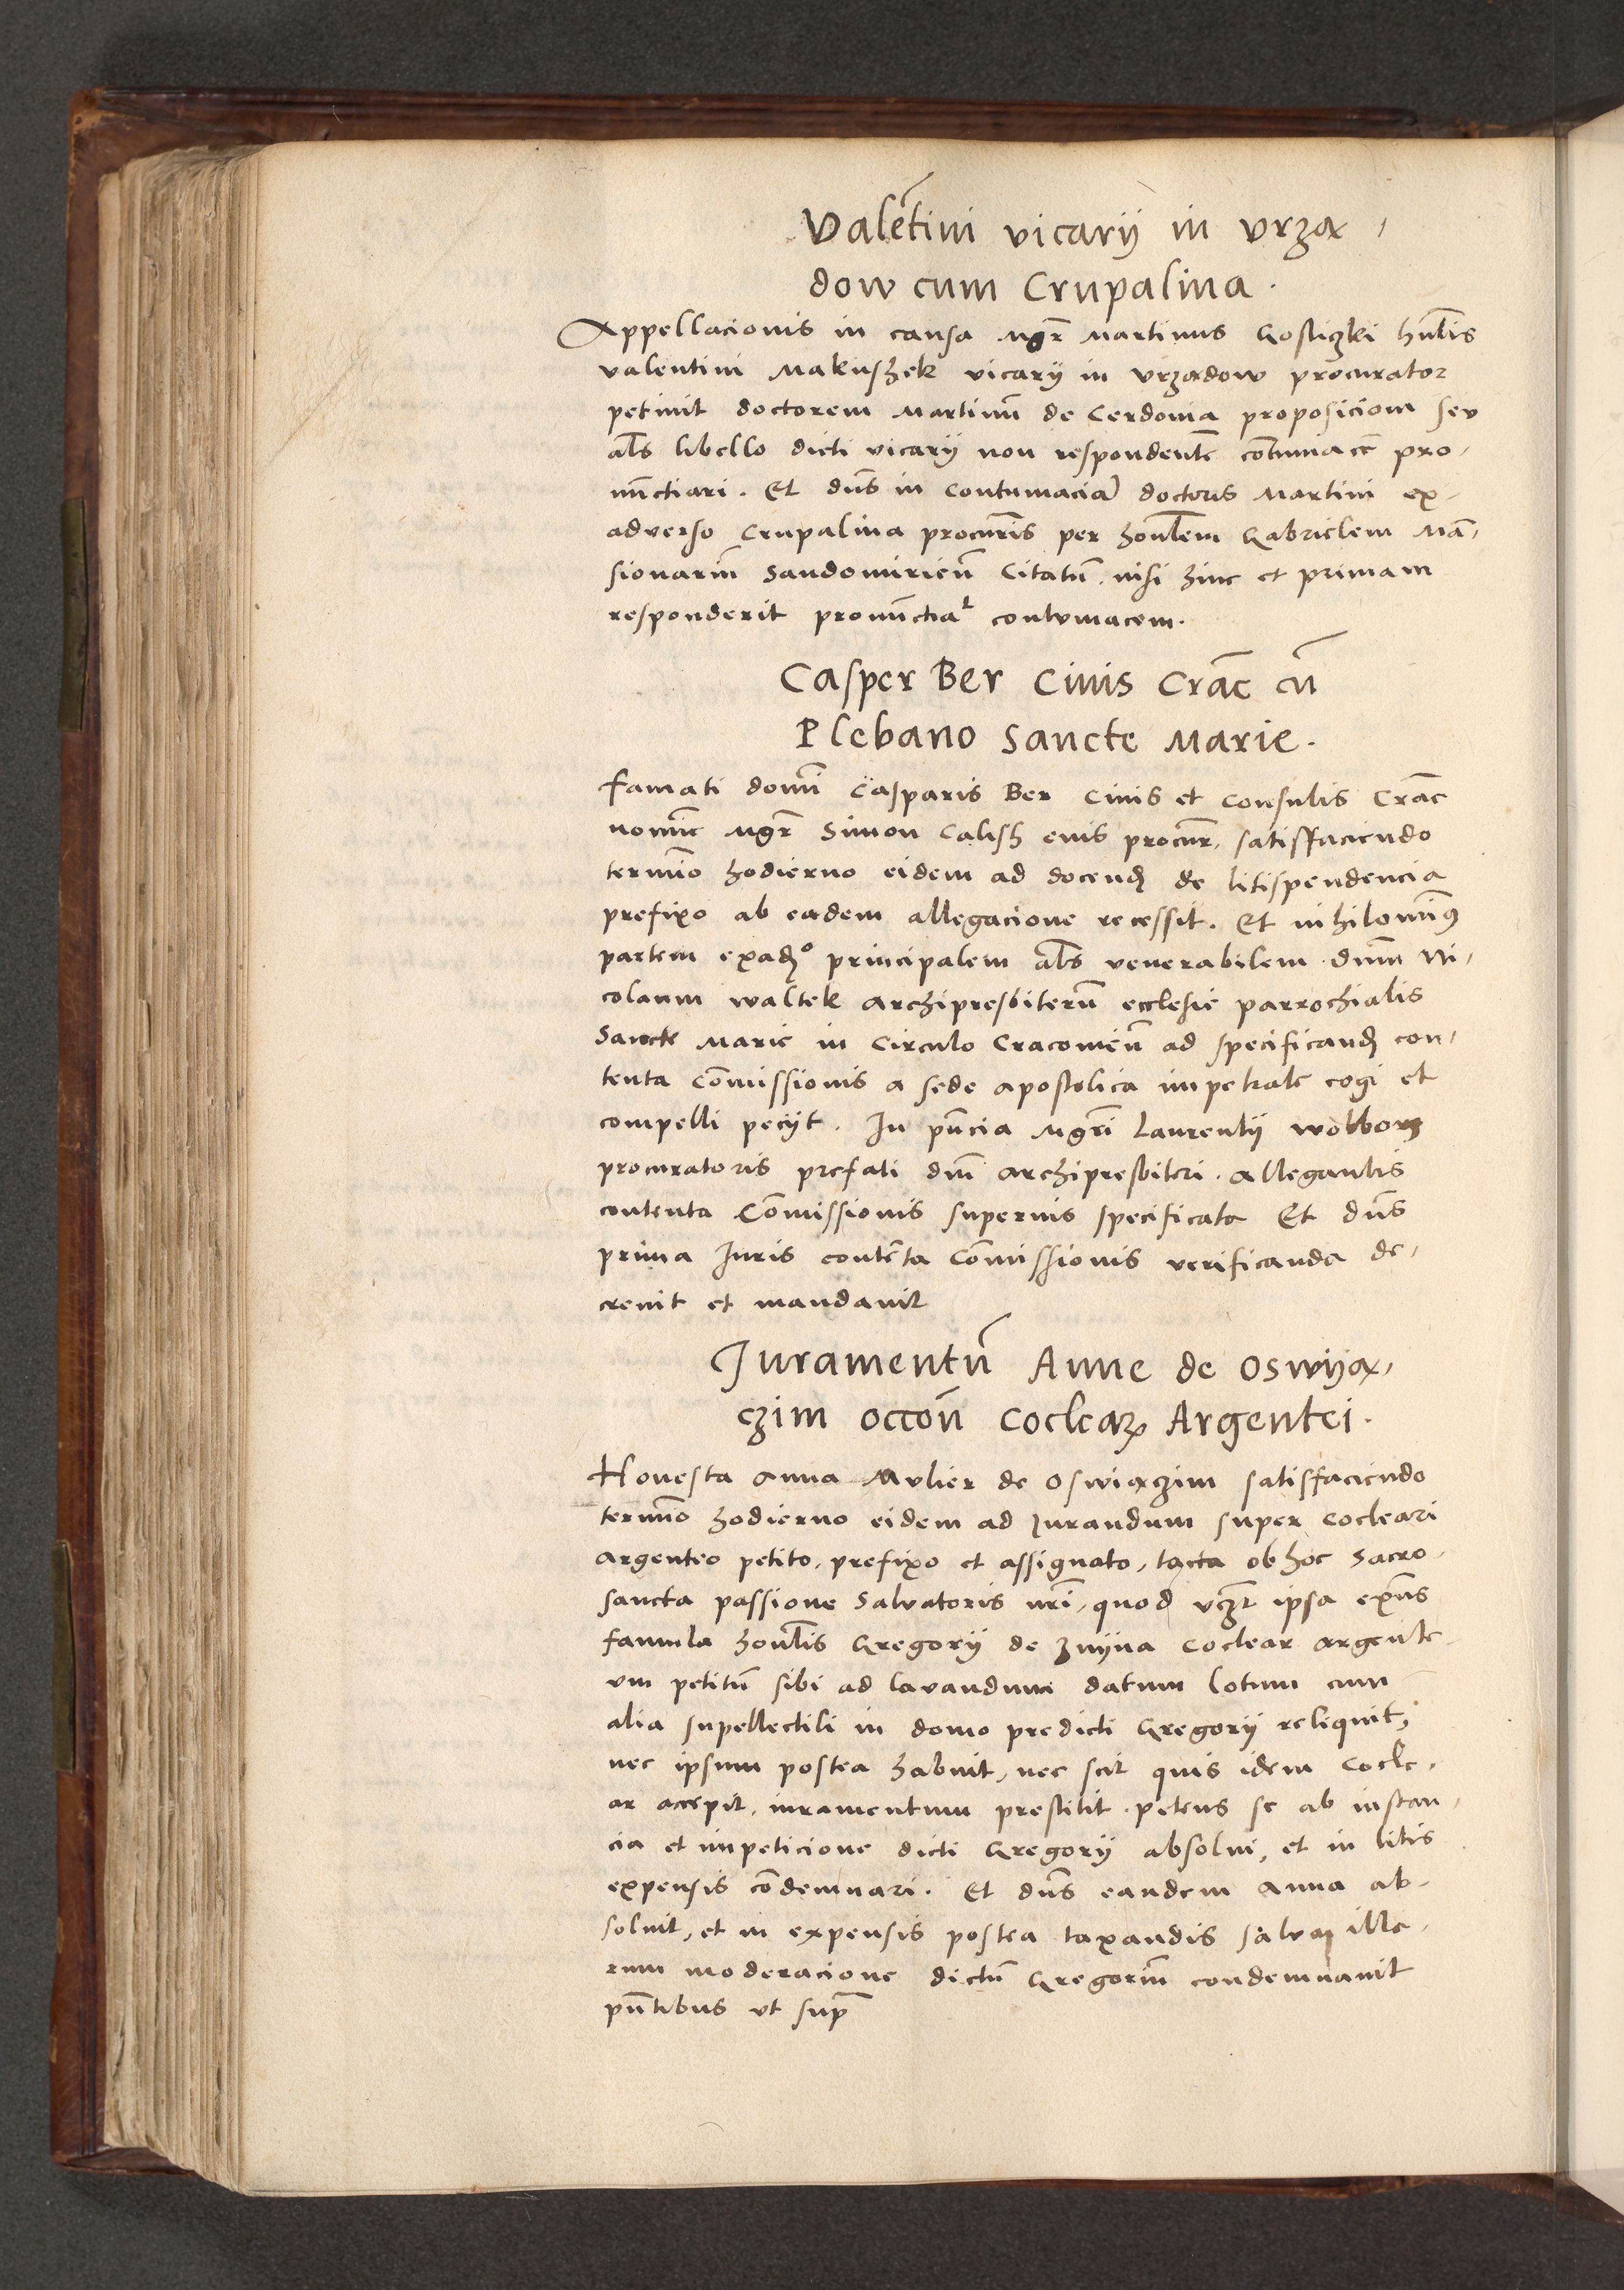 Valētini vicarij in vrzą-
dow cum Crupalina.
Appellacionis in causa Mgr̄ Martinus Gosticzki hūlis
valentini Makuszek vicarij in vrządow procurator
petiuit doctorem Martinū de Cerdonia proposiciom seu
al̄s libello dicti vicarij non respondentē cōtumacē pro-
nūctiari. Et dn̄s in contumaciā doctoris Martini ex-
aduerso Crupalina procur̄is per hon̄lem Gabrielem Mā-
sionariū Sandomirien̄ Citatū. nisi hinc et primam
responderit pronūctiat contumacem.
Casper Ber Ciuis Crac̄ cū
Plebano Sancte Marie.
famati domī Casparis Ber Ciuis et Consulis Crac̄
nomīe Mgr̄ Simon Calish eius procur̄. satisfaciendo
termīo hodierno eidem ad docend̄ de litispendencia
prefixo ab eadem allegacione recessit. Et nihilomīꝯ
partem exadꝰ principalem al̄s venerabilem dn̄m Ni-
colaum waltek Archipresbiterū ecclesie parrochialis
Sancte Marie in Circulo Cracouien̄ ad specificand̄ con-
tenta Cōmissionis a sede apostolica impetrate cogi et
compelli pecijt. In pn̄cia Mgr̄i Laurentij wolborz
procuratoris prefati dn̄i Archipresbiteri. allegantis
contenta Cōmissionis superius specificata Et dn̄s
prima Iuris contēta Cōmissionis verificanda de-
creuit et mandauit
Juramentū Anne de Oswyą-
czim occōn̄ Coclearꝭ Argentei.
Honesta anna Mulier de Oswiączim satisfaciendo
termīo hodierno eidem ad Jurandum super Cocleari
argenteo petito, prefixo et assignato, tacta ob hoc sacro-
sancta passione Saluatoris nr̄i, quod vcȝt ipsa exn̄s
famula hon̄lis Gregorij de Znyna Coclear argente-
um petitū sibi ad lauandum datum lotum cum
alia supellectili in domo predicti Gregorij reliquit,
nec ipsum postea habuit, nec scit quis idem Cocle-
ar accepit, iuramentum prestitit. petens se ab instan-
cia et impeticione dicti Gregorij absolui, et in litis
expensis cōdemnari. Et dn̄s eandem Anna ab-
soluit, et in expensis postea taxandis salua illa-
rum moderacione dictū Gregoriū condemnauit
pn̄tibus vt sup̄